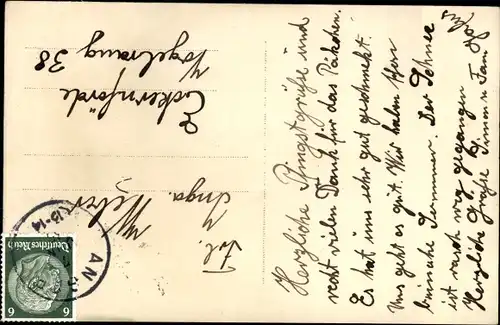 Herzliche Pfingstgrüße und
recht vielen Dank für das Päkchen.
Es hat uns sehr gut geschmekt.
Uns geht es gut. Wir haben schon
beinahe Sommer. Der Schnee
ist rasch weg gegangen
Herzliche Grüße
Frl.
Inga
Eckernförde
Vogelsang 38
Deutsches Reich
6
6
13-14